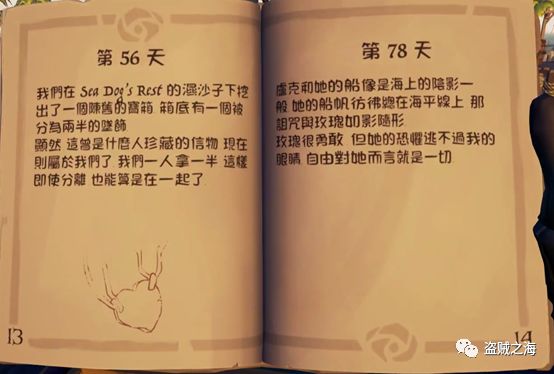 第 56 天
我們在 Sea Dog's Rest 的濕沙子下挖
出了一個陳舊的寶箱 箱底有一個被
分為兩半的墜飾
顯然 這曾是什麼人珍藏的信物 現在
則屬於我們了 我們一人拿一半 這樣
即使分離 也能算是在一起了
13
第 78 天
盧克和她的船像是海上的陰影一
般 她的船帆彷彿總在海平線上 那
詛咒與玫瑰如影隨形
玫瑰很勇敢 但她的恐懼逃不過我的
眼睛 自由對她而言就是一切
14
盗贼之海